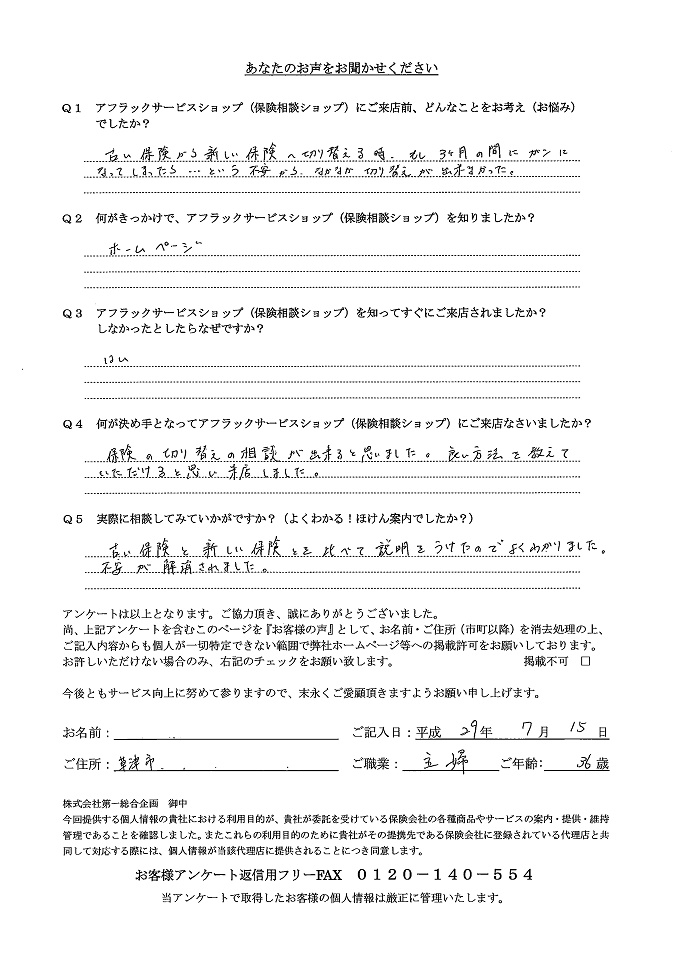 あなたのお声をお聞かせください
Q1 アフラックサービスショップ(保険相談ショップ)にご来店前、どんなことをお考え(お悩み)
でしたか?
古い保険から新しい保険へ切り替える時、もし3ヶ月の間にガンに
なってしまったら…という不安から、なかなか切り替えが出来なかった。
Q2 何がきっかけで、アフラックサービスショップ(保険相談ショップ)を知りましたか?
ホームページ
Q3 アフラックサービスショップ(保険相談ショップ)を知ってすぐにご来店されましたか?
しなかったとしたらなぜですか?
はい
Q4 何が決め手となってアフラックサービスショップ(保険相談ショップ)にご来店なさいましたか?
保険の切り替えの相談が出来ると思いました。良い方法を教えて
いただけると思い来店しました。
Q5 実際に相談してみていかがですか?(よくわかる!ほけん案内でしたか?)
古い保険と新しい保険とを比べて説明をうけたのでよくわかりました。
不安が解消されました。
アンケートは以上となります。ご協力頂き、誠にありがとうございました。
尚、上記アンケートを含むこのページを『お客様の声』として、お名前・ご住所(市町以降)を消去処理の上、
ご記入内容からも個人が一切特定できない範囲で弊社ホームページ等への掲載許可をお願いしております。
お許しいただけない場合のみ、右記のチェックをお願い致します。 掲載不可 □
今後ともサービス向上に努めて参りますので、末永くご愛顧頂きますようお願い申し上げます。
お名前: ご記入日:平成 29年 7月 15日
ご住所: 草津市 ご職業: 主婦 ご年齢: 36歳
株式会社第一総合企画 御中
今回提供する個人情報の貴社における利用目的が、貴社が委託を受けている保険会社の各種商品やサービスの案内・提供・維持
管理であることを確認しました。またこれらの利用目的のために貴社がその提携先である保険会社に登録されている代理店と共
同して対応する際には、個人情報が当該代理店に提供されることにつき同意します。
お客様アンケート返信用フリーFAX 0120-140-554
当アンケートで取得したお客様の個人情報は厳正に管理いたします。